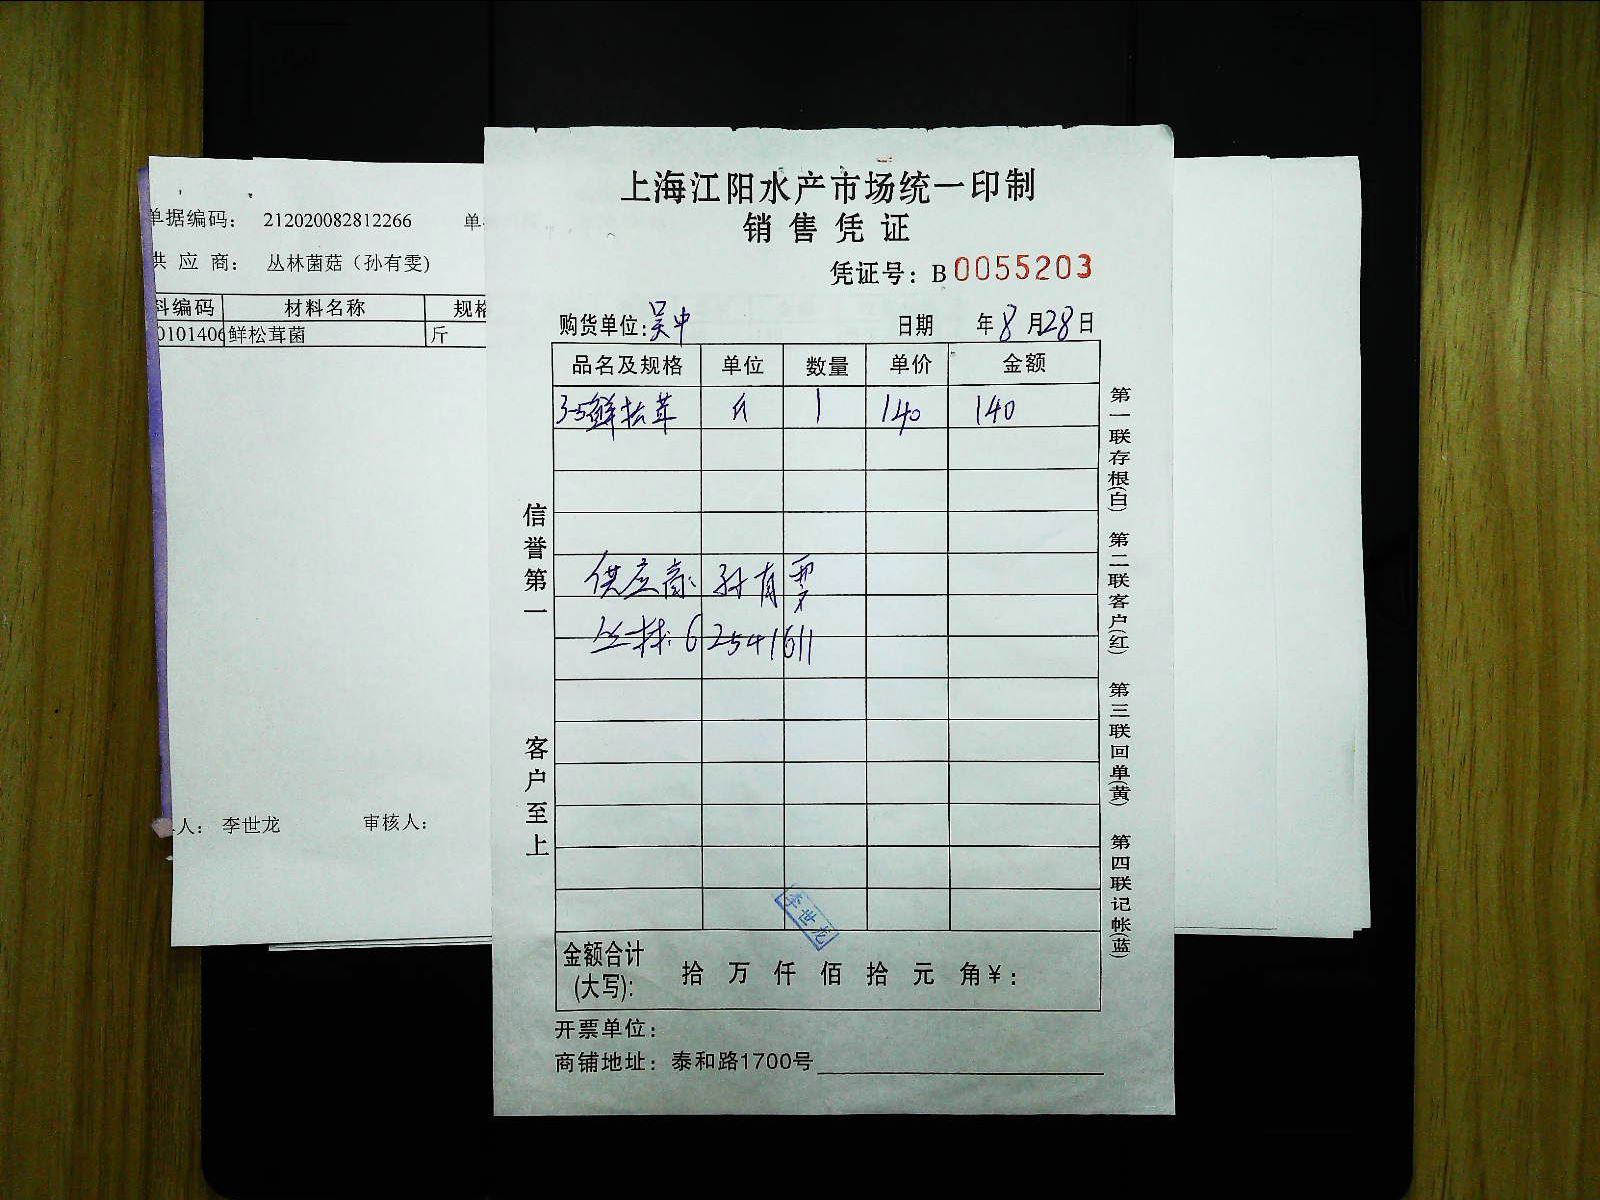 单据编码： 212020082812266 单
供 应 商： 丛林菌菇（孙有雯)
料编码 材料名称 规格
0101406 鲜松茸菌 斤
人： 李世龙 审核人:
上海江阳水产市场统一印制
销售凭证
凭证号：B 0055203
购货单位:吴中 日期 年8月28日
品名及规格 单位 数量 单价 金额
3-5鲜松茸 斤 1 140 140
供应商: 孙有雯
丛林: 62541611
李世龙
金额合计
(大写): 拾 万 仟 佰 拾 元 角￥:
开票单位:
商铺地址: 泰和路1700号
信誉第一
客户至上
第一联存根(白)
第二联客户(红)
第三联回单(黄)
第四联记帐(蓝)